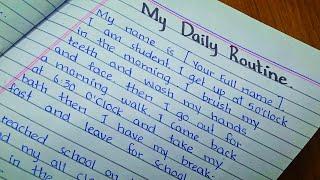 My Daily Routine.
My name is [Your full name]
I am student I get up at 5o'clock
in the morning. I brush my
teeth and wash my hands
and face, then I go out for
a morning walk. I came back
at 6:30 o'clock and take my
bath then I have my break-
fast and leave for school
reached school on
nd my all cl
in the